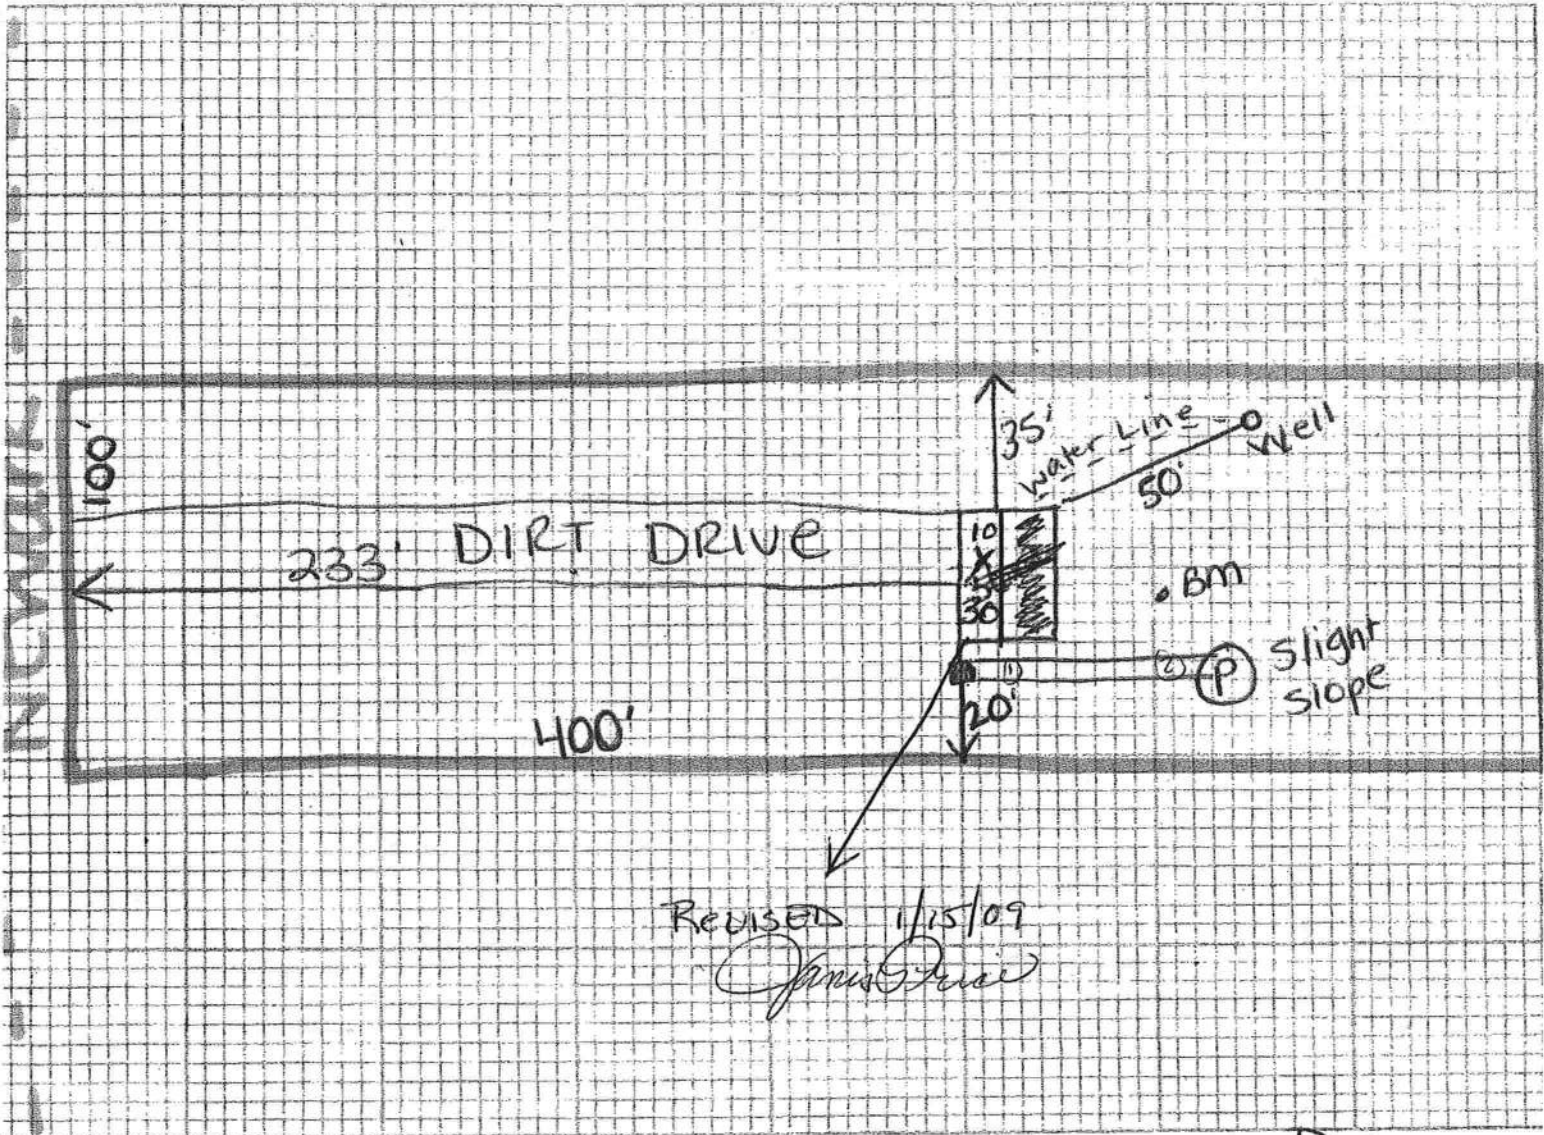 NEWARK
100'
35'
Water Line
Well
50'
10
X
30
DIRT DRIVE
233'
BM
(1)
(2)
P
Slight
Slope
20'
400'
REVISED 1/15/09